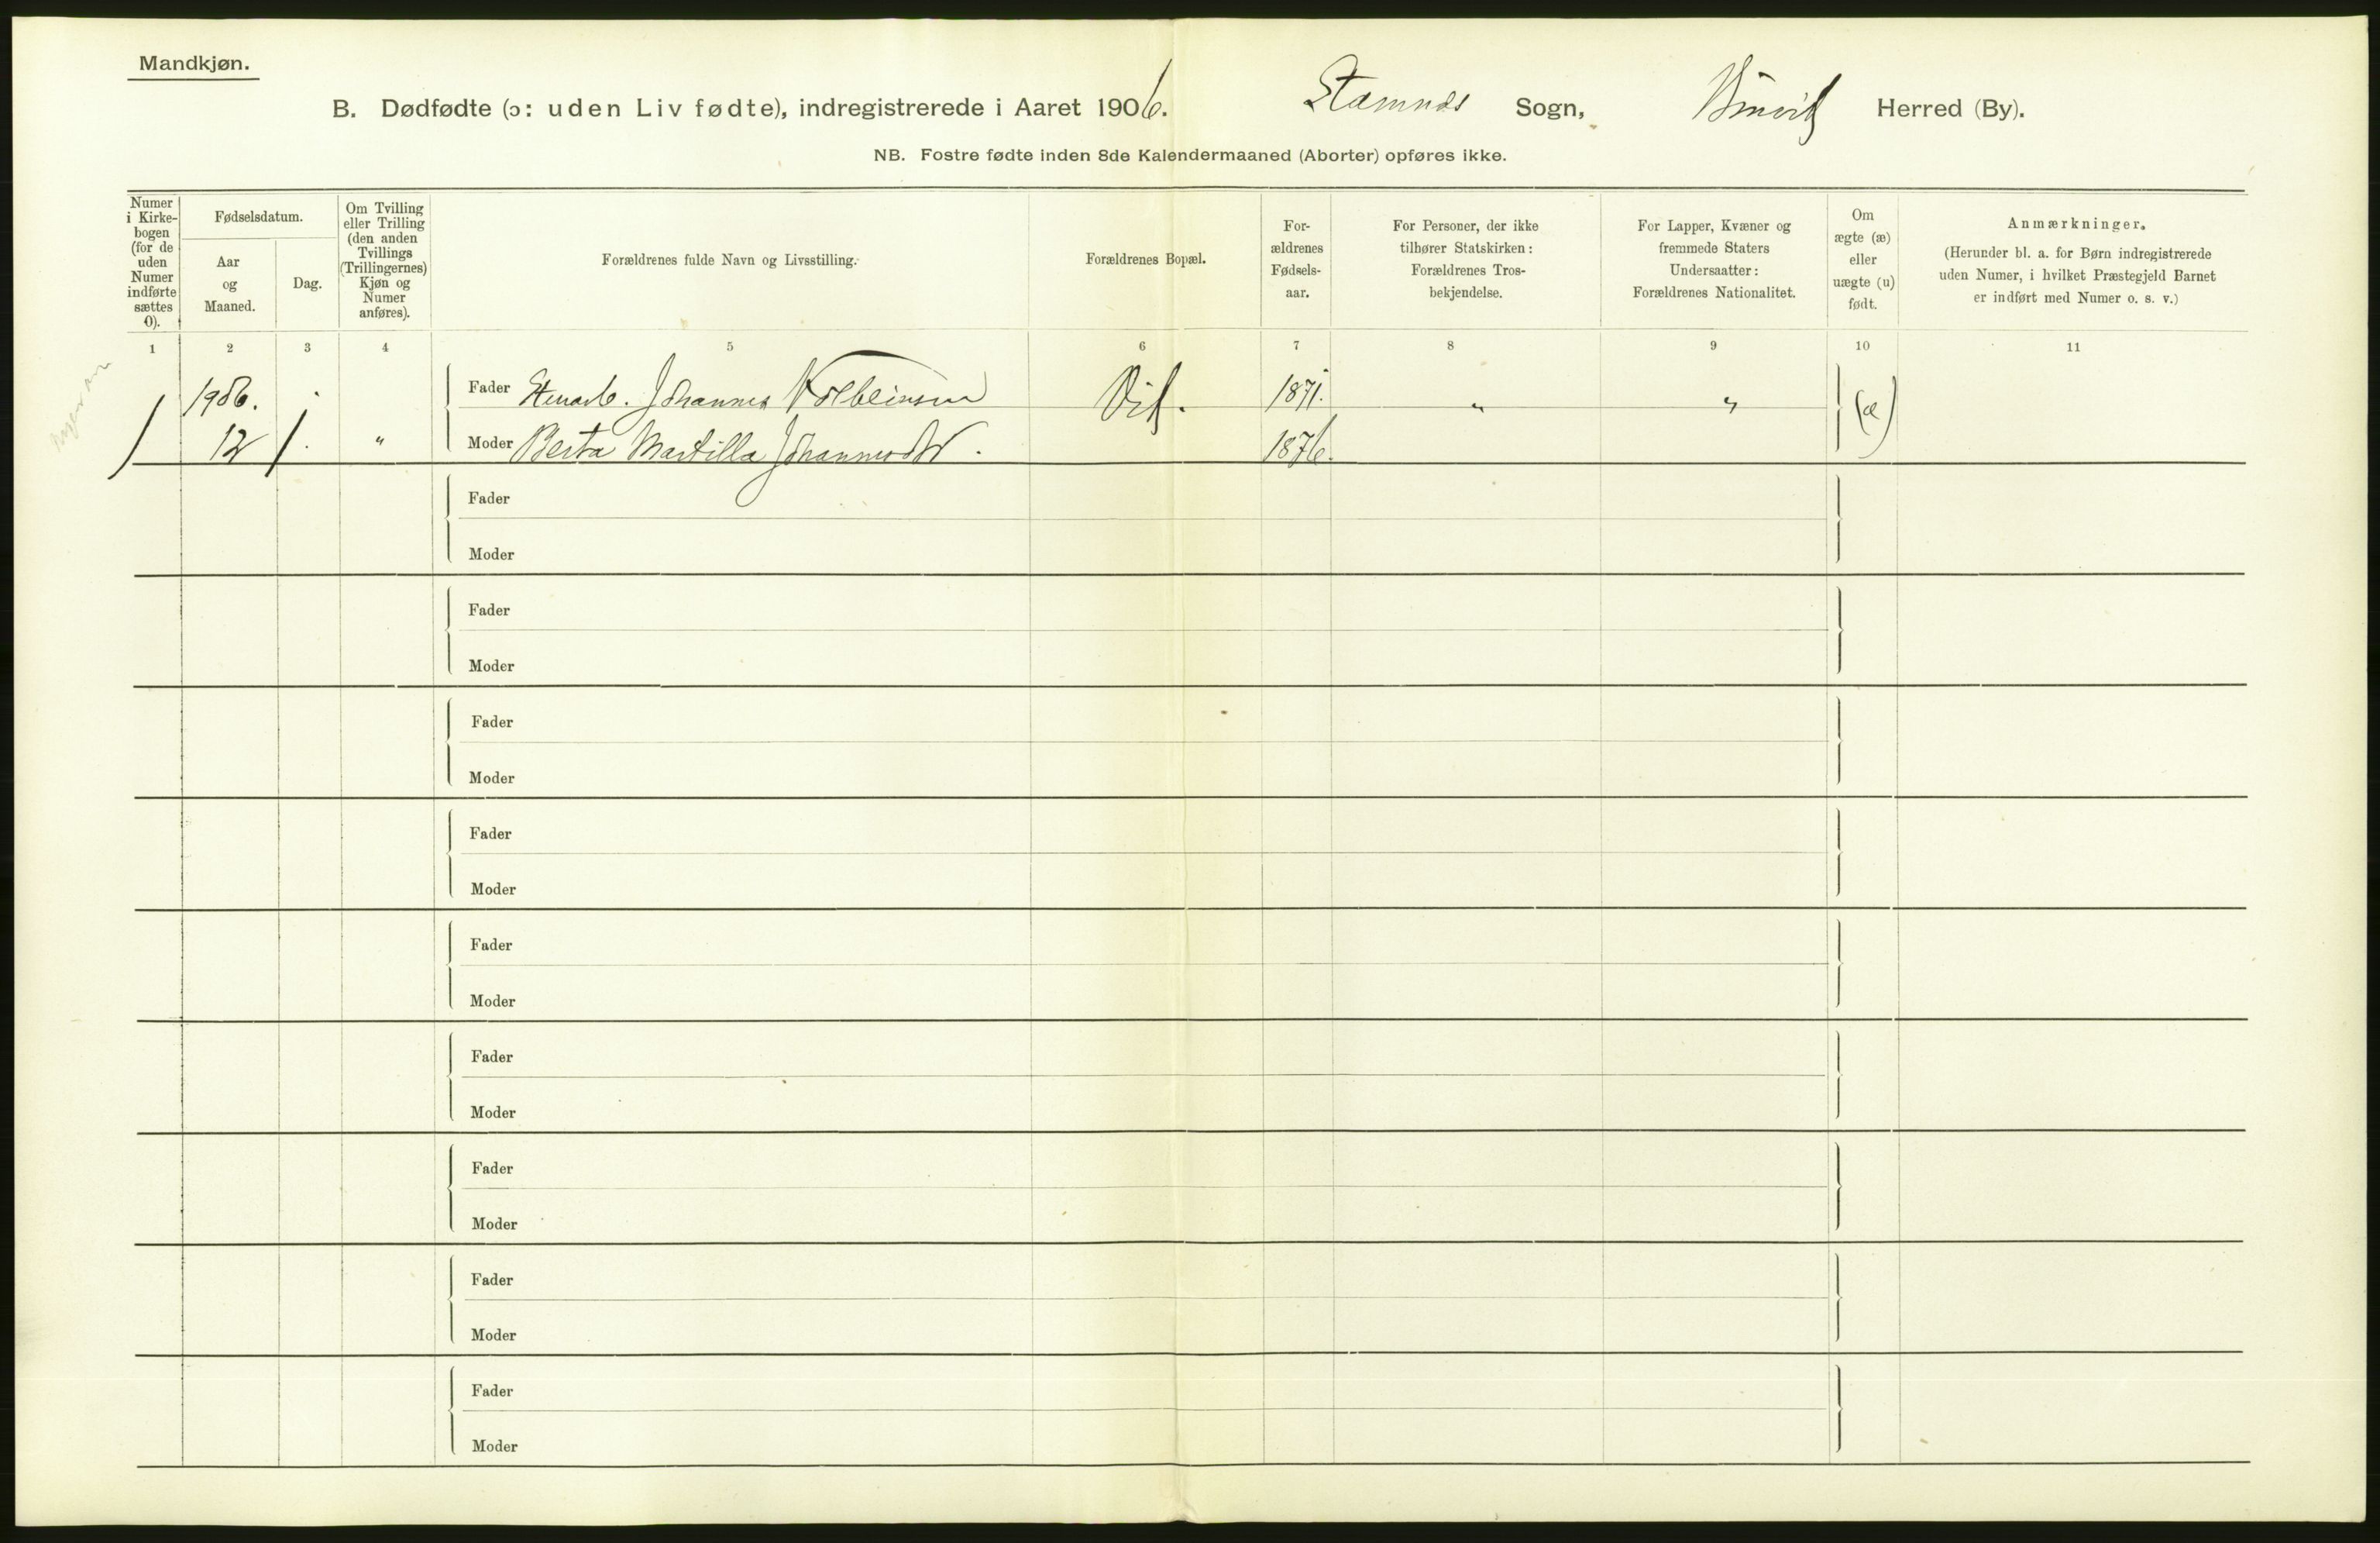 Mandkjøn.
B. Dødfødte (ɔ: uden Liv fødte), indregistrerede i Aaret 1906. Stamnæs Sogn, Bruvik Herred (By).
NB. Fostre fødte inden 8de Kalendermaaned (Aborter) opføres ikke.
Numer i Kirkebogen (for de uden Numer indførte sættes 0).
Fødselsdatum.
Aar og Maaned.
Dag.
Om Tvilling eller Trilling (den anden Tvillings (Trillingernes) Kjøn og Numer anføres).
Forældrenes fulde Navn og Livsstilling.
Forældrenes Bopæl.
For-
ældrenes
Fødsels-
aar.
For Personer, der ikke
tilhører Statskirken:
Forældrenes Tros-
bekjendelse.
For Lapper, Kvæner og
fremmede Staters
Undersaatter:
Forældrenes Nationalitet.
Om
ægte (æ)
eller
uægte (u)
født.
Anmærkninger.
(Herunder bl. a. for Børn indregistrerede
uden Numer, i hvilket Præstegjeld Barnet
er indført med Numer o. s. v.)
1 2 3 4 5 6 7 8 9 10 11
1906. Fader Stenarb. Johannes Kolbeinsen Vik. 1871. " " (æ)
1 12 1. " Moder Berta Martilla Johannesdtr. 1876.
Fader
Moder
Fader
Moder
Fader
Moder
Fader
Moder
Fader
Moder
Fader
Moder
Fader
Moder
Fader
Moder
Fader
Moder